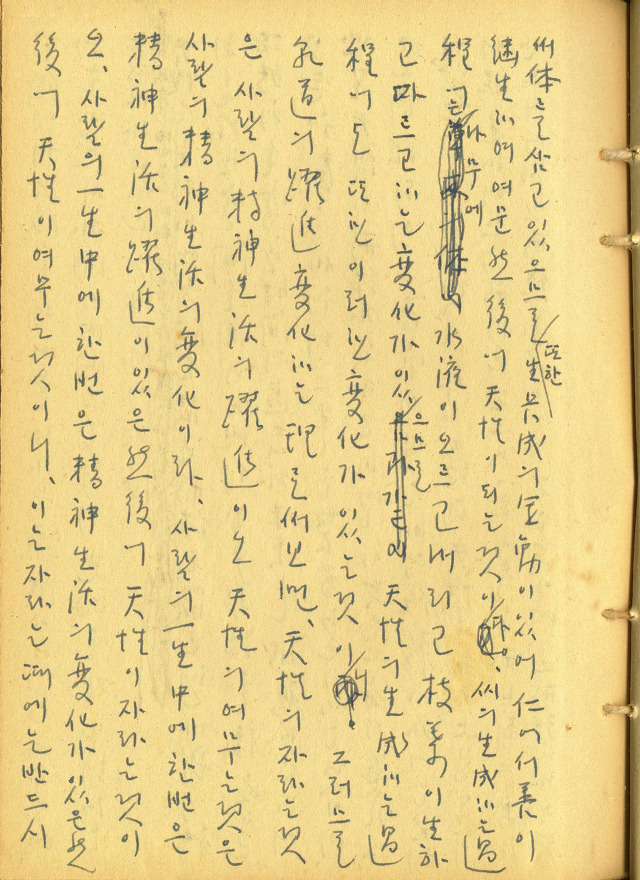 써 体를 삼고 있음으로 또한 生長成의 运動이 있어 仁에서 善이
継生하여 여문 然後에 天性이 되는 것이라。 씨의 生成하는 過
程에는 나무에 水液이 오르고 내리고 枝葉이 生하
고 마르고 하는 変化가 있으므로 天性의 生成하는 過
程에도 또한 이러한 変化가 있는 것이니 그러므로
乳道의 躍進変化하는 理로써 보면、天性의 자라는 것
은 사람의 精神生活의 躍進이오 天性의 여무는 것은
사람의 精神生活의 変化이라、사람의 一生中에 한번은
精神生活의 躍進이 있은 然後에 天性이 자라는 것이
오、사람의 一生中에 한번은 精神生活의 変化가 있은 然
後에 天性이 여무는 것이니、이는 자라는 때에는 반드시